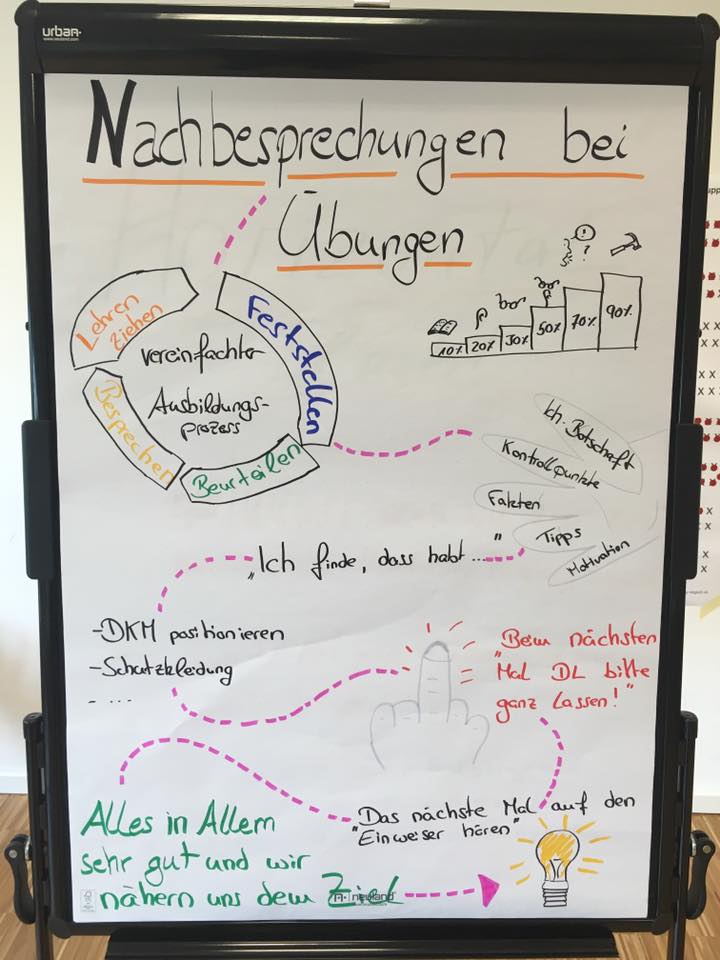 urban
www.neuland.com
Nachbesprechungen bei
Übungen
Lehren
ziehen
Feststellen
Besprechen
Beurteilen
vereinfachter
Ausbildungs-
prozess
10%
20%
30%
50%
70%
90%
!
?
Ich-Botschaft
Kontrollpunkte
Fakten
Tipps
Motivation
„Ich finde, dass habt ..."
-DKM positionieren
-Schutzkleidung
- ...
„Beim nächsten
Mal DL bitte
ganz lassen!"
Das nächste Mal auf den
"Einweiser hören"
Alles in Allem
sehr gut und wir
nähern uns dem Ziel
neuland
upp
X X
X X
X X X
X
X
X